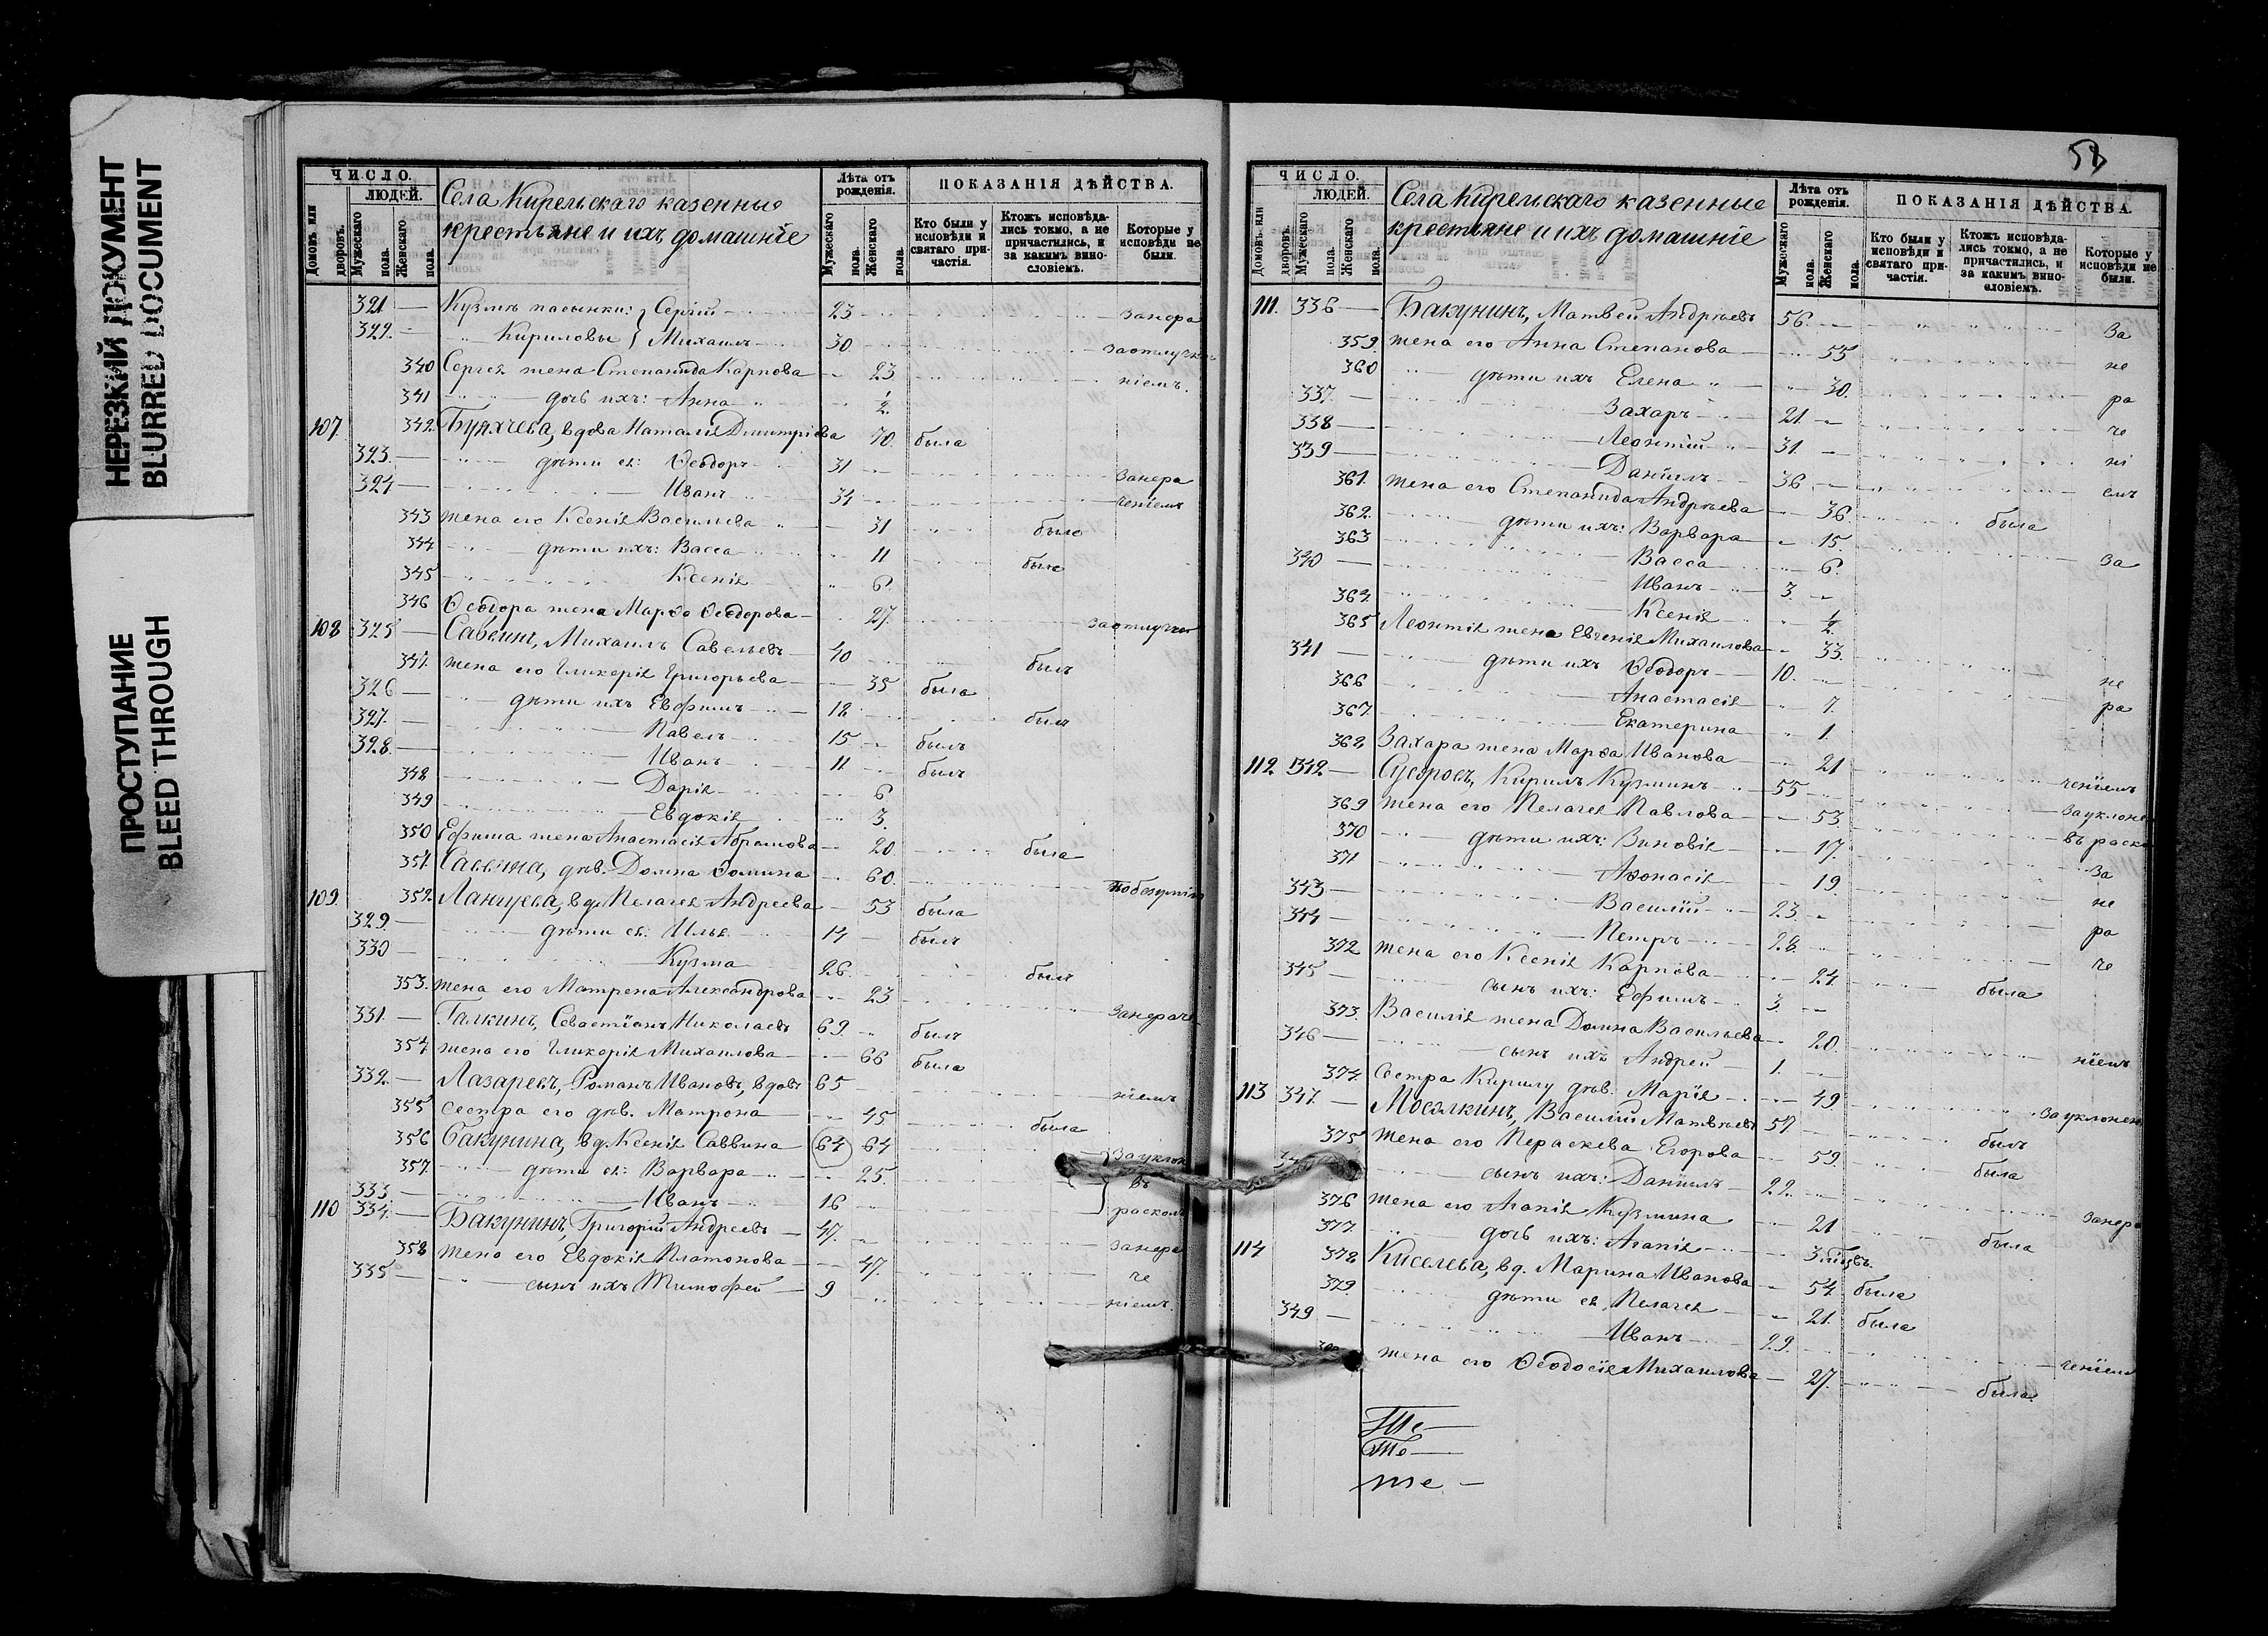 НЕРЕЗКИЙ ДОКУМЕНТ
BLURRED DOCUMENT
ПРОСТУПАНИЕ
BLEED THROUGH
ЧИСЛО.
ЛЮДЕЙ.
Домовъ или дворовъ.
Мужескаго пола.
Женскаго пола.
Села Кирельскаго казенные
крестьяне и ихъ домашніе
Лѣта отъ рожденія.
Мужескаго пола.
Женскаго пола.
ПОКАЗАНІЯ ДѢЙСТВА.
Кто были у исповѣди и святаго причастія.
Ктожъ исповѣдались токмо, а не причастились, и за какимъ винословіемъ.
Которые у исповѣди не были.
321 — Кузмы пасынки: Сергій 23 занера
322 Кириловы Михаилъ 30 заотлуч
340 Сергея жена Степанида Карпова 23 ніемъ.
341 дочь ихъ: Анна 1/2
107 342 вдова Наталія Димитріева 70 была
323 дѣти ея: Ѳеодоръ 31 Занера
324 Иванъ 34 ченіемъ
343 жена его Ксенія Васильева 31 была
344 дѣти ихъ: Васса 11 была
345 Ксенія 6
346 Ѳеодора жена Марѳа Ѳеодорова 27 заотлуч
108 325 Саввинъ, Михаилъ Савельевъ 40 былъ
347 жена его Гликерія Григорьева 35 была
326 дѣти ихъ Евфимъ 18 былъ
327 Павелъ 15 былъ
328 Иванъ 11 былъ
348 Дарія 6
349 Евдокія 3
350 Ефима жена Анастасія Абрамова 20 была
351 Саввина, дѣв. Домна Ѳомина 60 по безумію
109 352 вд. Пелагея Андреева 53 была
329 дѣти ея: Илья 14 былъ
330 Кузма 26 былъ
353 жена его Матрена Александрова 23 Занераче
331 Галкинъ, Севастіанъ Николаевъ 69 былъ
354 жена его Гликерія Михаилова 66 была
332 Лазаревъ, Романъ Ивановъ, вдовъ 65 ніемъ
355 сестра его дѣв. Матрона 45 была
356 Бакунина, вд. Ксенія Саввина 64 64 За уклон
357 дѣти ея: Варвара 25 въ
333 Иванъ 16 расколъ
110 334 Бакунинъ, Григорій Андреевъ 47 Занера
358 жена его Евдокія Платонова 47 че
335 сынъ ихъ Тимофей 9 ніемъ.
ЧИСЛО.
ЛЮДЕЙ.
Домовъ или дворовъ.
Мужескаго пола.
Женскаго пола.
Села Кирельскаго казенные
крестьяне и ихъ домашніе
Лѣта отъ рожденія.
Мужескаго пола.
Женскаго пола.
ПОКАЗАНІЯ ДѢЙСТВА.
Кто были у исповѣди и святаго причастія.
Ктожъ исповѣдались токмо, а не причастились, и за какимъ винословіемъ.
Которые у исповѣди не были.
111. 336 Бакунинъ, Матвей Андрѣевъ 56 За
359 жена его Анна Степанова 55 не
360 дѣти ихъ Елена 30 ра
337 Захаръ 21 че
338 Леонтій 31 ні
339 Даніилъ 36 емъ
361 жена его Степанида Андрѣева 36 была
362 дѣти ихъ: Варвара 15
363 Васса 6 За
340 Иванъ 3
364 Ксенія 1/2
365 Леонтія жена Евгенія Михаилова 33
341 дѣти ихъ Ѳеодоръ 10 не
366 Анастасія 7 ра
367 Екатерина 1
368 Захара жена Марѳа Иванова 21 ченіемъ
112 342 Кирилъ Кузминъ 55 За уклоне
369 жена его Пелагея Павлова 53 въ раск
370 дѣти ихъ: Зиновія 17 За
371 Аѳонасія 19 не
343 Василій 23 ра
344 Петръ 28 че
372 жена его Ксенія Карпова 24 была
345 сынъ ихъ: Ефимъ 3
373 Василія жена Домна Васильева 20
346 сынъ ихъ Андрей 1 ніемъ
374 Сестра Кирилу дѣв. Марія 49 За уклонен
113 347 Мосялкинъ, Василій Матвѣевъ 57 былъ
375 жена его Параскева Егорова 59 была
сынъ ихъ: Даніилъ 22 Занера
376 жена его Агапія Кузмина 21 была
377 дочь ихъ: Агапія 3 мѣс.
114 378 Киселева, вд. Марина Иванова 54 была
379 дѣти ея, Пелагея 21 была
349 Иванъ 29 ченіемъ
жена его Ѳеодосія Михаилова 27 была
Те
Те
те